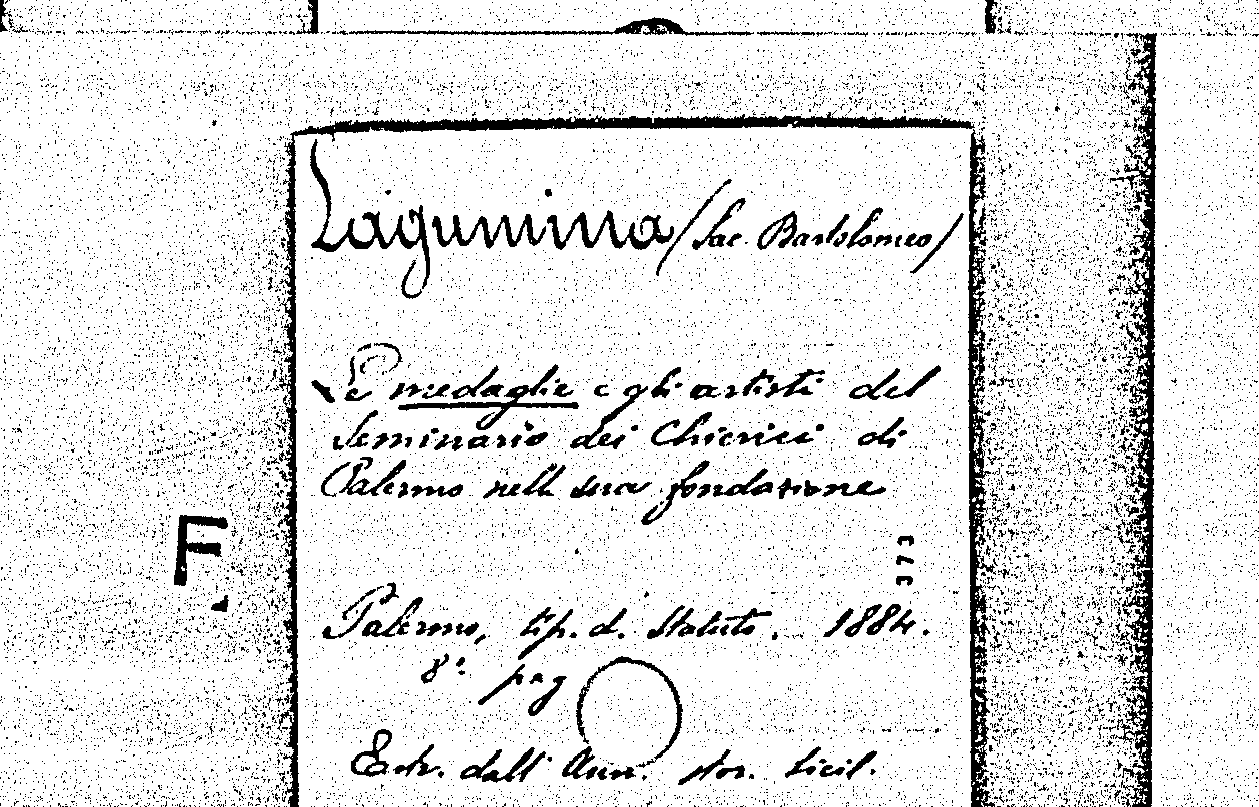 Lagumina / Sac. Bartolomeo /
Le medaglie e gli artisti del
Seminario dei Chierici di
Palermo nella sua fondazione
373
F
Palermo, tip. d. Statuto. 1884.
8º pag
Estr. dall' stor. sicil.